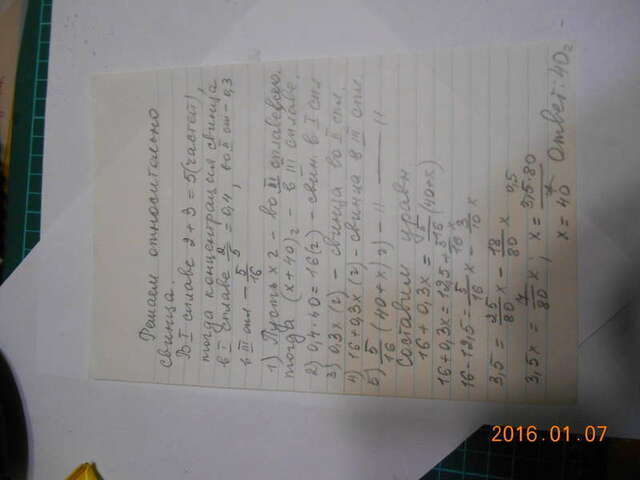 Решаем относительно
свинца.
В I сплаве 2+3=5(частей),
тогда концентрация свинца
в I сплаве 2/5 = 0,4, во II спл - 0,3
в III спл - 5/16
1) Пусть x г - во II сплаве было,
тогда (x+40) г - в III сплаве.
2) 0,4·40=16(г) - свин. в I спл
3) 0,3x (г) - свинца во II спл.
4) 16+0,3x (г) - свинца в III спл.
5) 5/16 (40+x) г) - 11 - 11
Составим уравн
16+0,3x = 5/16 (40+x)
16+0,3x = 12,5 + 5/16 x
16-12,5 = 5/16 x - 3/10 x
3,5 = 25/80 x - x
3,5x = /80 x, x = 3,5·80
0,5
x = 40 Ответ: 40 г
2016.01.07